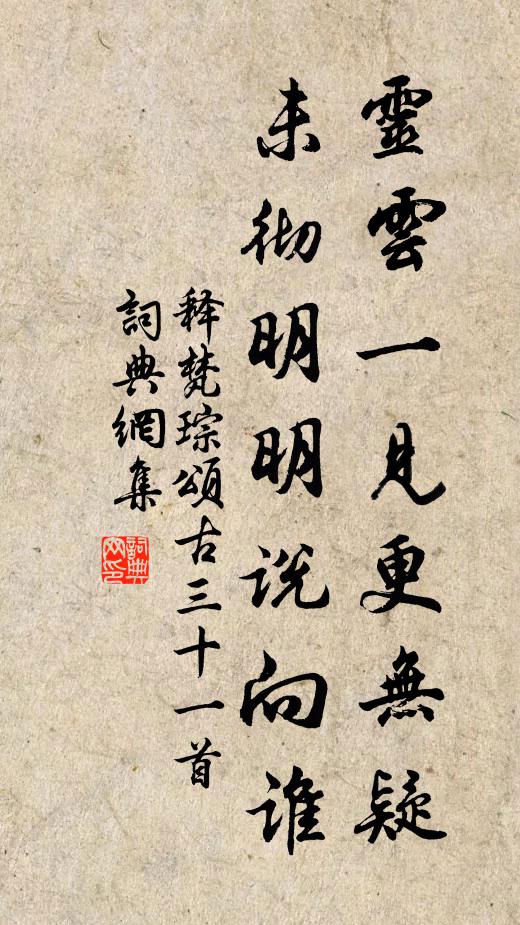 靈雲一見更無疑
未徹明明説向誰
释梵琮頌古三十一首
詞典網集
詞典网印